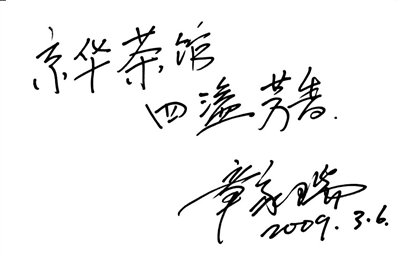 京华茶馆
四溢芳香.
章家瑞
2009.3.6.